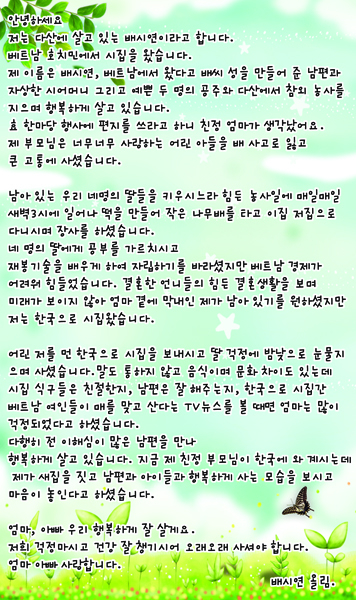 안녕하세요
저는 다산에 살고 있는 배시연이라고 합니다.
베트남 호치민에서 시집을 왔습니다.
제 이름은 배시연, 베트남에서 왔다고 배씨 성을 만들어 준 남편과
자상한 시어머니 그리고 예쁜 두 명의 공주와 다산에서 참외 농사를
지으며 행복하게 살고 있습니다.
효 한마당 행사에 편지를 쓰라고 하니 친정 엄마가 생각났어요.
제 부모님은 너무너무 사랑하는 어린 아들을 배 사고로 잃고
큰 고통에 사셨습니다.
남아 있는 우리 네명의 딸들을 키우시느라 힘든 농사일에 매일매일
새벽3시에 일어나 떡을 만들어 작은 나무배를 타고 이집 저집으로
다니시며 장사를 하셨습니다.
네 명의 딸에게 공부를 가르치시고
재봉기술을 배우게 하여 자립하기를 바라셨지만 베트남 경제가
어려워 힘들었습니다. 결혼한 언니들의 힘든 결혼생활을 보며
미래가 보이지 않아 엄마 곁에 막내인 제가 남아 있기를 원하셨지만
저는 한국으로 시집왔습니다.
어린 저를 먼 한국으로 시집을 보내시고 딸 걱정에 밤낮으로 눈물지
으며 사셨습니다.말도 통하지 않고 음식이며 문화 차이도 있는데
시집 식구들은 친절한지, 남편은 잘 해주는지, 한국으로 시집간
베트남 여인들이 매를 맞고 산다는 TV뉴스를 볼 때면 엄마는 많이
걱정되었다고 하셨습니다.
다행히 전 이해심이 많은 남편을 만나
행복하게 살고 있습니다. 지금 제 친정 부모님이 한국에 와 계시는데
제가 새집을 짓고 남편과 아이들과 행복하게 사는 모습을 보시고
마음이 놓인다고 하셨습니다.
엄마, 아빠 우리 행복하게 잘 살게요.
저희 걱정마시고 건강 잘 챙기시어 오래오래 사셔야 합니다.
엄마 아빠 사랑합니다.
배시연 올림.